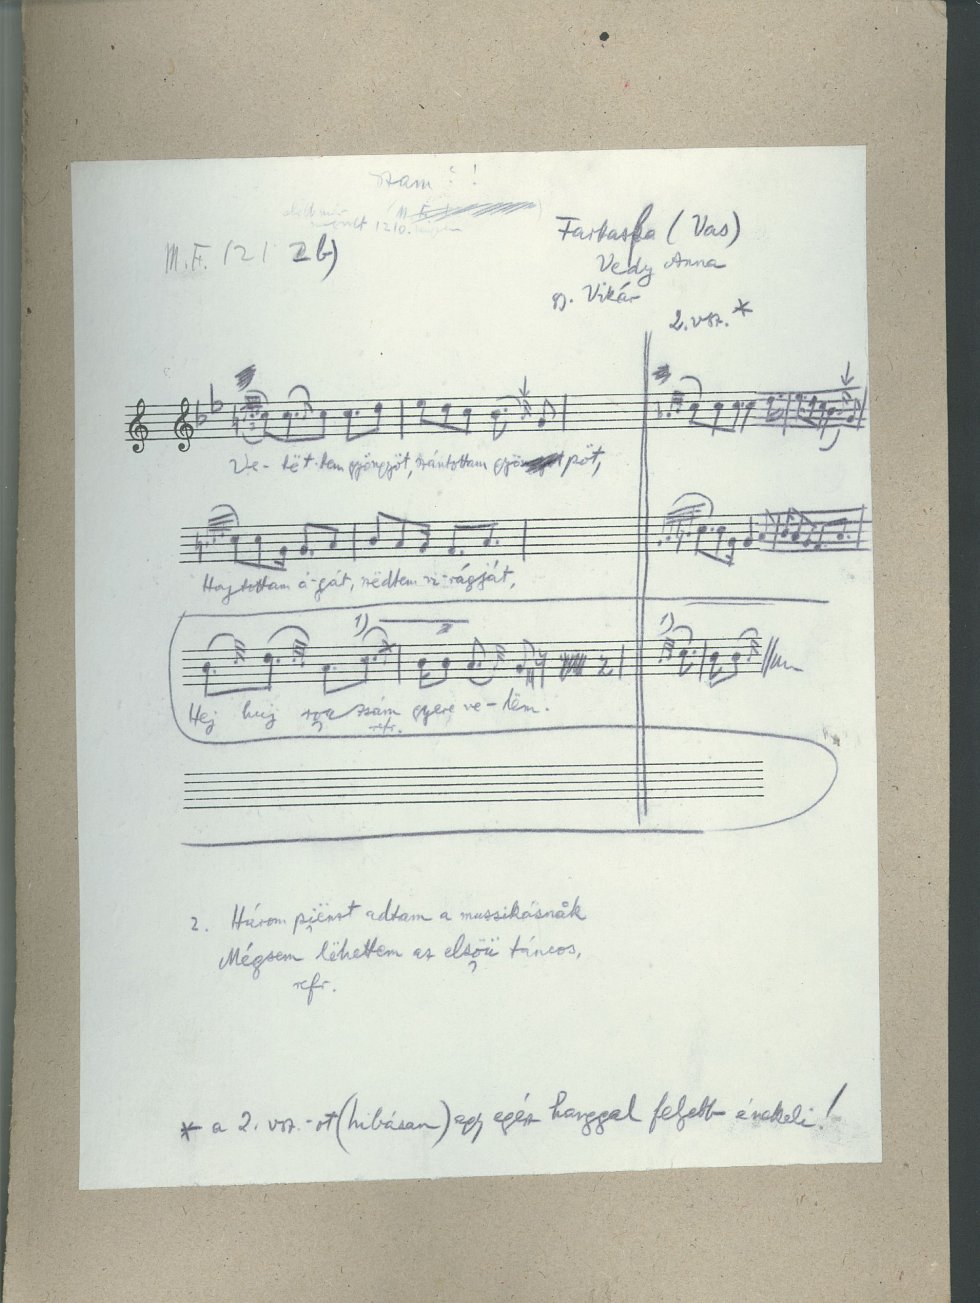 szám !
1210.
M.F. 121 2b)
Farkasfa (Vas)
Vedy Anna
gy. Vikár
2. vsz. *
Ve- tët-tem gyöngyöt, szántottam pöt,
Hajtottam á-gát, szëdtem vi-rágját,
1)
1)
Hej huj szám gyere ve-lëm.
refr.
2. Három piënzt adtam a mussikásnåk
Mégsem lëhettem az elsöü táncos,
refr.
* a 2. vsz.-ot (hibásan) egy egész hanggal feljebb énekeli!